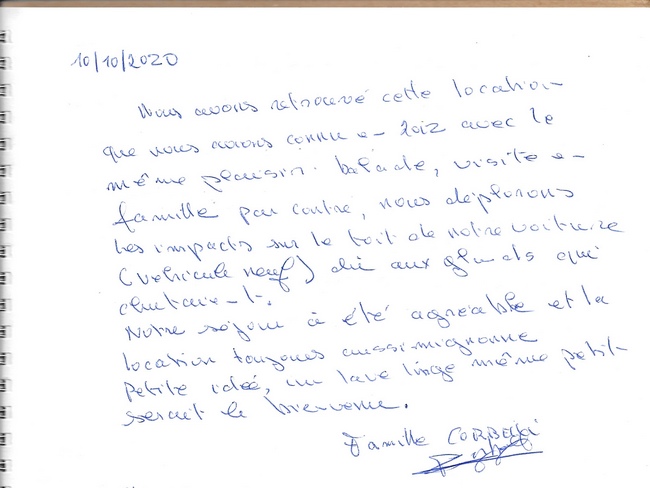 10/10/2020
Nous avons retrouvé cette location
que nous avons connu en 2012 avec le
même plaisir. balade, visite en
famille par contre, nous déplorons
les impacts sur le toit de notre voiture
(véhicule neuf) dû aux glands qui
chutaient.
Notre séjour à été agréable et la
location toujours aussi mignonne
Petite idée, un lave linge même petit
serait le bienvenu.
Famille